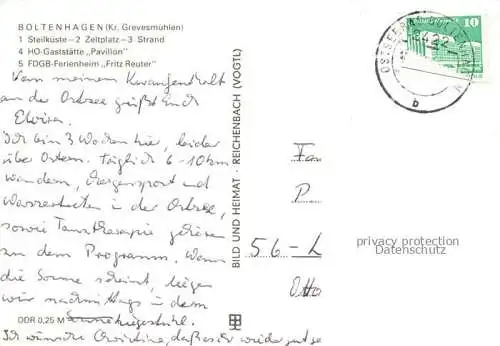 BOLTENHAGEN (Kr. Grevesmühlen)
1 Steilküste – 2 Zeltplatz – 3 Strand
4 HO-Gaststätte „Pavillon"
5 FDGB-Ferienheim „Fritz Reuter"
Vom meinem Kuraufenthalt
an der Ostsee grüßt Euch
Elvira.
Ich bin 3 Wochen hier, leider
über Ostern. Täglich 6-10 km
wandern, Bergensport und
Wassertreten in der Ostsee,
sowie Tanztherapie gehören
zu dem Programm. Wenn
die Sonne scheint, liegen
wir nachmittags in dem
Liegestuhl.
Ich wünsche Christine, daß es ihr wieder gut ge
DDR 0,25 M
BILD UND HEIMAT · REICHENBACH (VOGTL)
OSTSEEBAD BOLTENHAGEN
b
10
Fam
P
56-L
Otto
privacy protection
Datenschutz